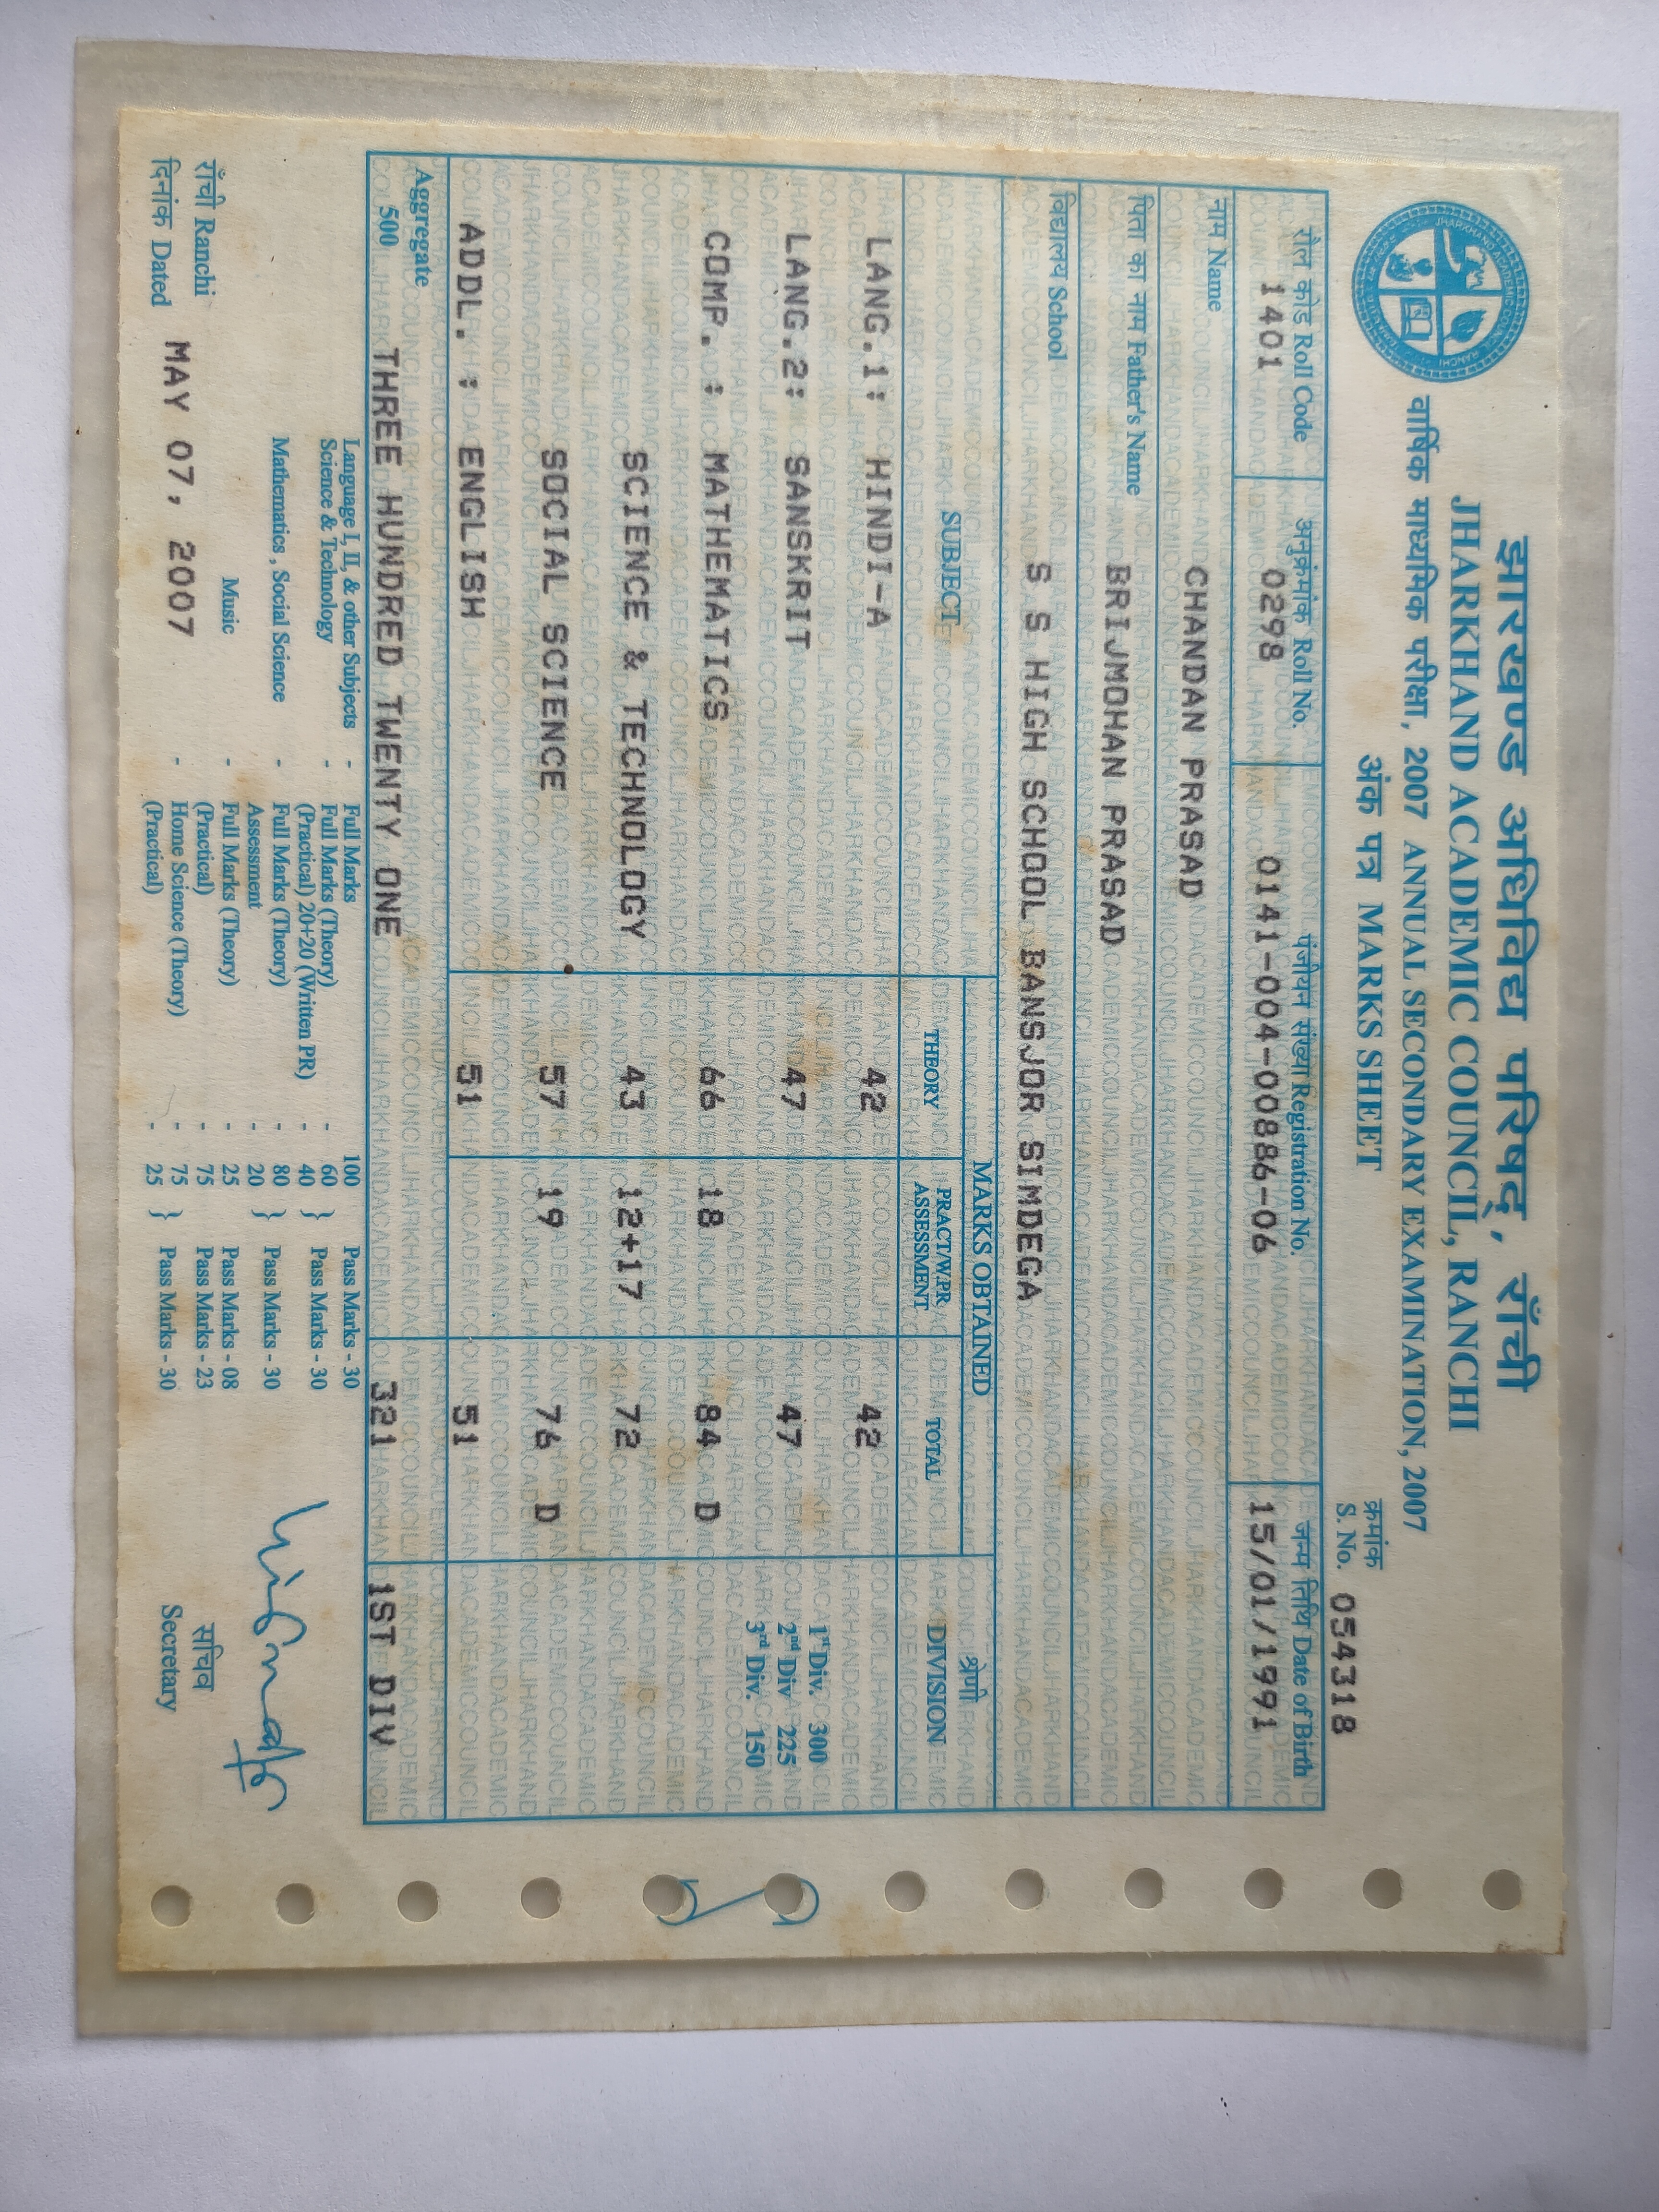 झारखण्ड अधिविद्य परिषद्, राँची
JHARKHAND ACADEMIC COUNCIL, RANCHI
वार्षिक माध्यमिक परीक्षा, 2007 ANNUAL SECONDARY EXAMINATION, 2007
अंक पत्र MARKS SHEET
क्रमांक
S. No. 054318
रौल कोड Roll Code अनुक्रमांक Roll No. पंजीयन संख्या Registration No. जन्म तिथि Date of Birth
1401 0298 0141-004-00886-06 15/01/1991
नाम Name CHANDAN PRASAD
पिता का नाम Father's Name BRIJMOHAN PRASAD
विद्यालय School S S HIGH SCHOOL BANSJOR SIMDEGA
SUBJECT MARKS OBTAINED श्रेणी
THEORY PRACT/W.PR ASSESSMENT TOTAL DIVISION
LANG.1: HINDI-A 42 42
LANG.2: SANSKRIT 47 47
COMP. : MATHEMATICS 66 18 84 D
SCIENCE & TECHNOLOGY 43 12+17 72
SOCIAL SCIENCE 57 19 76 D
ADDL. : ENGLISH 51 51
1st Div. 300
2nd Div 225
3rd Div. 150
Aggregate
500 THREE HUNDRED TWENTY ONE 321 1ST DIV
Language I, II, & other Subjects - Full Marks - 100 Pass Marks - 30
Science & Technology - Full Marks (Theory) - 60 } Pass Marks - 30
(Practical) 20+20 (Written PR) 40
Mathematics , Social Science - Full Marks (Theory) - 80 } Pass Marks - 30
Assessment - 20
Music - Full Marks (Theory) - 25 Pass Marks - 08
(Practical) - 75 Pass Marks - 23
- Home Science (Theory) - 75 } Pass Marks - 30
(Practical) - 25
राँची Ranchi
दिनांक Dated MAY 07, 2007
सचिव
Secretary